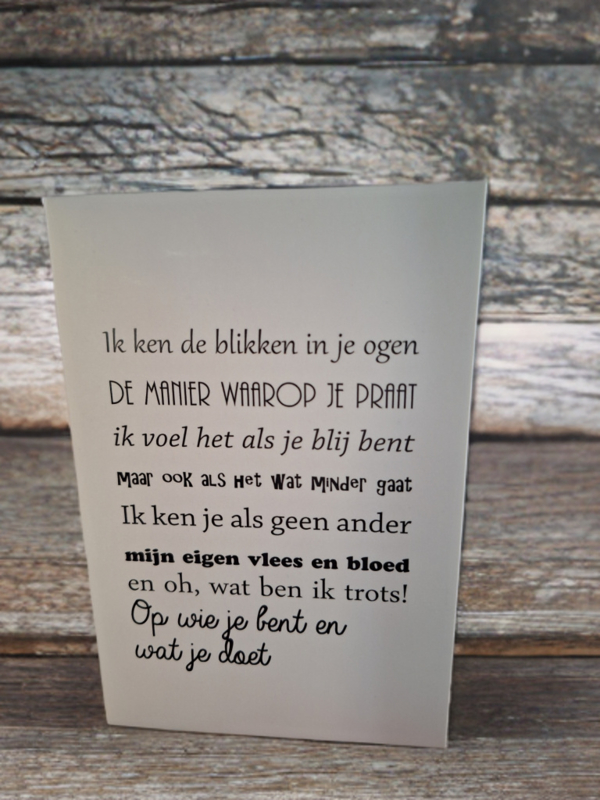 Ik ken de blikken in je ogen
DE MANIER WAAROP JE PRAAT
ik voel het als je blij bent
Maar ook als Het Wat Minder gaat
Ik ken je als geen ander
mijn eigen vlees en bloed
en oh, wat ben ik trots!
Op wie je bent en
wat je doet